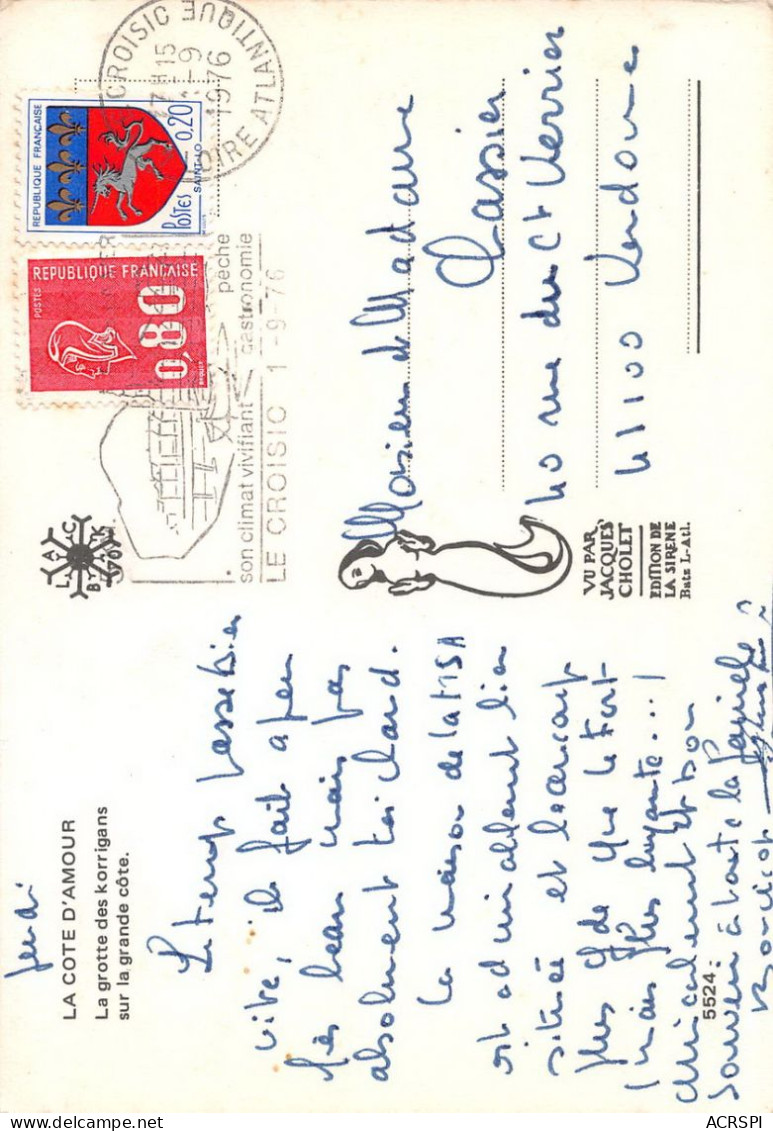 Jeudi
LA COTE D'AMOUR
La grotte des korrigans
sur la grande côte.
Le temps passe bien
vite, il fait à peu
près beau mais pas
absolument très chaud.
La maison de la MSA
est admirablement bien
située et beaucoup
plus gde que le Fort
(mais plus bruyante...)
Amicalement et bon
souvenir à toute la famille
5524
CROISIC
LOIRE ATLANTIQUE
17H15
1-9
1976
REPUBLIQUE FRANÇAISE
0,20
POSTES SAINT-LO
REPUBLIQUE FRANÇAISE
POSTES
0,80
BEQUET
pêche
son climat vivifiant gastronomie
LE CROISIC 1-9-76
Monsieur et Madame
Cassier
40 rue du Ct Verrier
41100 Vendome
VU PAR
JACQUES
CHOLET
EDITION DE
LA SIRENE
Batz L-Atl.
ACRSPI